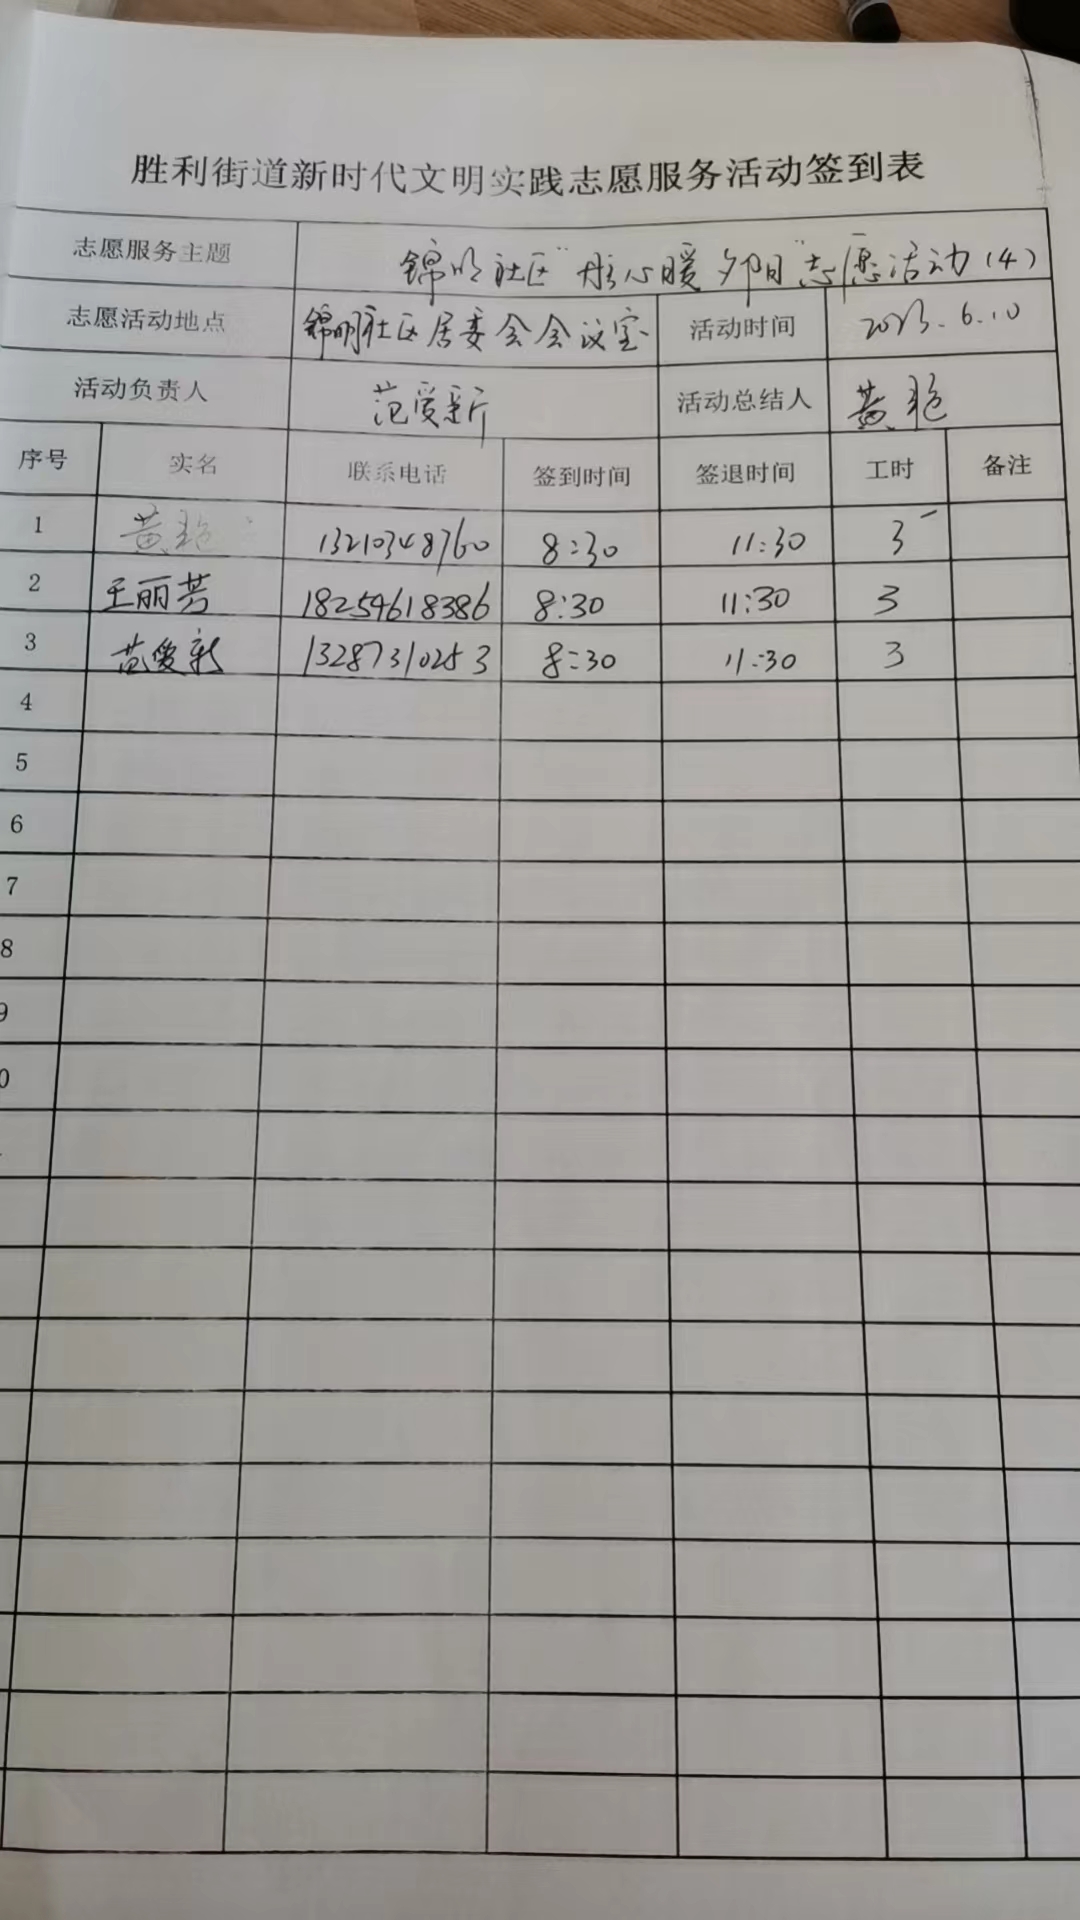 胜利街道新时代文明实践志愿服务活动签到表
志愿服务主题 锦明社区"彤心暖夕阳"志愿活动(4)
志愿活动地点 锦明社区居委会会议室 活动时间 2023.6.10
活动负责人 范爱新 活动总结人 黄艳
序号 实名 联系电话 签到时间 签退时间 工时 备注
1 黄艳 13210348760 8:30 11:30 3
2 王丽芳 18254618386 8:30 11:30 3
3 范爱新 13287310253 8:30 11:30 3
4
5
6
7
8
9
0